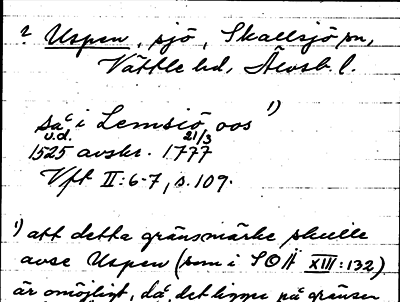 ? Uspen, sjö, Skallsjö sn,
Vättle hd, Älvsb l.
sa i Lemsiö oos 1)
u.d. 21/3
1525 avskr. 1777
Vft II:6-7, s. 109.
1) att detta gränsmärke skulle
avse Uspen (som i SOÄ XIII:132)
är omöjligt, då det ligger på gränsen